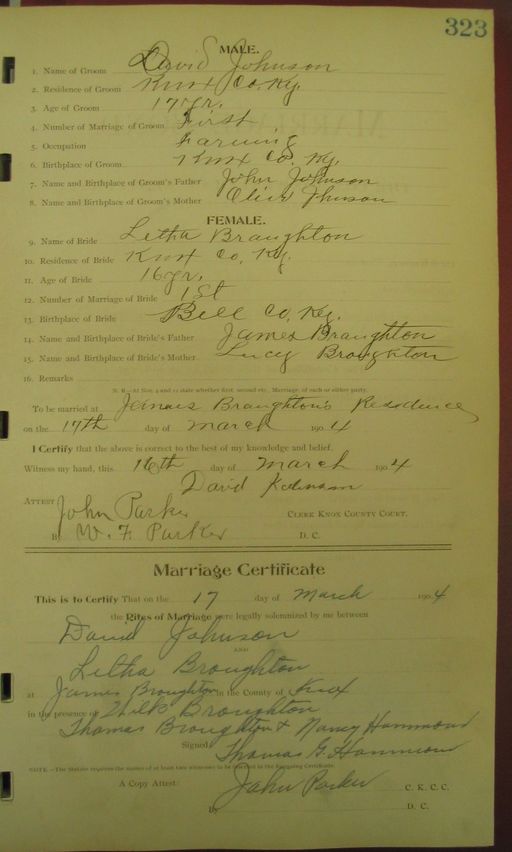 323
MALE.
1. Name of Groom David Johnson
2. Residence of Groom Knox Co. Ky.
3. Age of Groom 17 yr.
4. Number of Marriage of Groom First
5. Occupation Farming
6. Birthplace of Groom Knox Co. Ky.
7. Name and Birthplace of Groom's Father John Johnson
8. Name and Birthplace of Groom's Mother
FEMALE.
9. Name of Bride Letha Braughton
10. Residence of Bride Knox Co, Ky.
11. Age of Bride 16 yr.
12. Number of Marriage of Bride 1St
13. Birthplace of Bride Bell Co. Ky.
14. Name and Birthplace of Bride's Father James Braughton
15. Name and Birthplace of Bride's Mother Lucy Broughton
16. Remarks
N. B.—At Nos. 4 and 12 state whether first, second etc., Marriage, of each or either party.
To be married at Braughton's Residence
on the 17th day of March 1904
I Certify that the above is correct to the best of my knowledge and belief.
Witness my hand, this 16th day of March 1904
David
ATTEST John Parker CLERK KNOX COUNTY COURT.
By W. F. Parker D. C.
Marriage Certificate
This is to Certify That on the 17 day of March 1904
the Rites of Marriage were legally solemnized by me between
David Johnson
AND
Letha Broughton
at James Broughton in the County of Knox
in the presence of Broughton
Thomas Broughton & Nancy Hammond
Signed Thomas G. Hammond
NOTE.—The Statute requires the names of at least two witnesses to be inserted in the foregoing Certificate.
A Copy Attest: John Parker C. K. C. C.
By D. C.